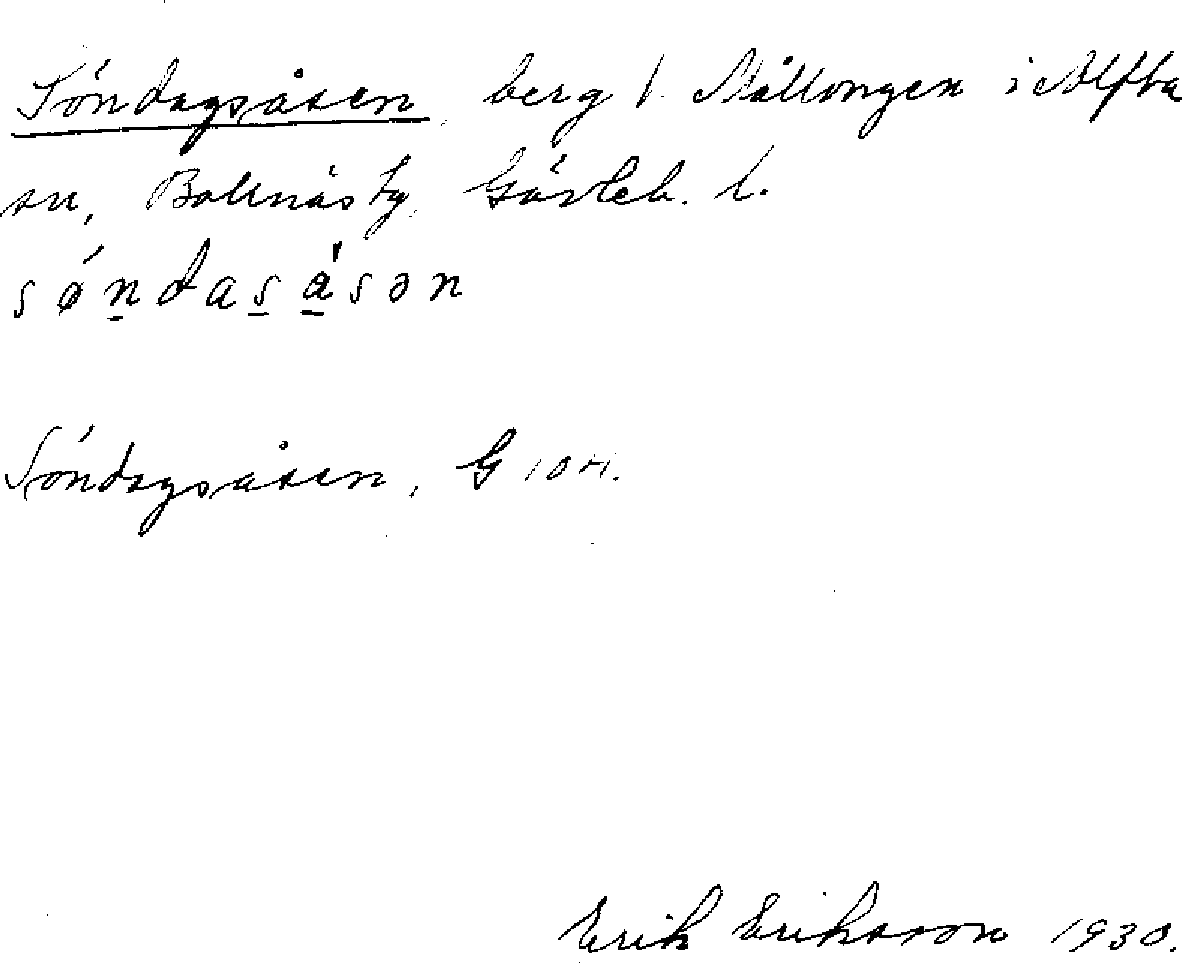 Söndagsåsen, berg f. Mållongen i Alfta
sn, Bollnäs tg, Gävleb. l.
söndasåsən
Söndagsåsen, G 104.
Erik Eriksson 1930.